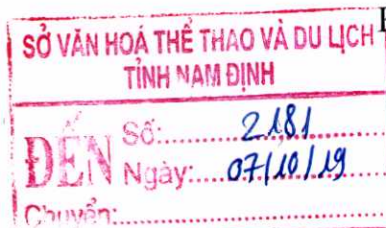 SỞ VĂN HOÁ THỂ THAO VÀ DU LỊCH
TỈNH NAM ĐỊNH
ĐẾN
Số:..........2181..........
Ngày:.....07/10/19.....
Chuyển:..............................